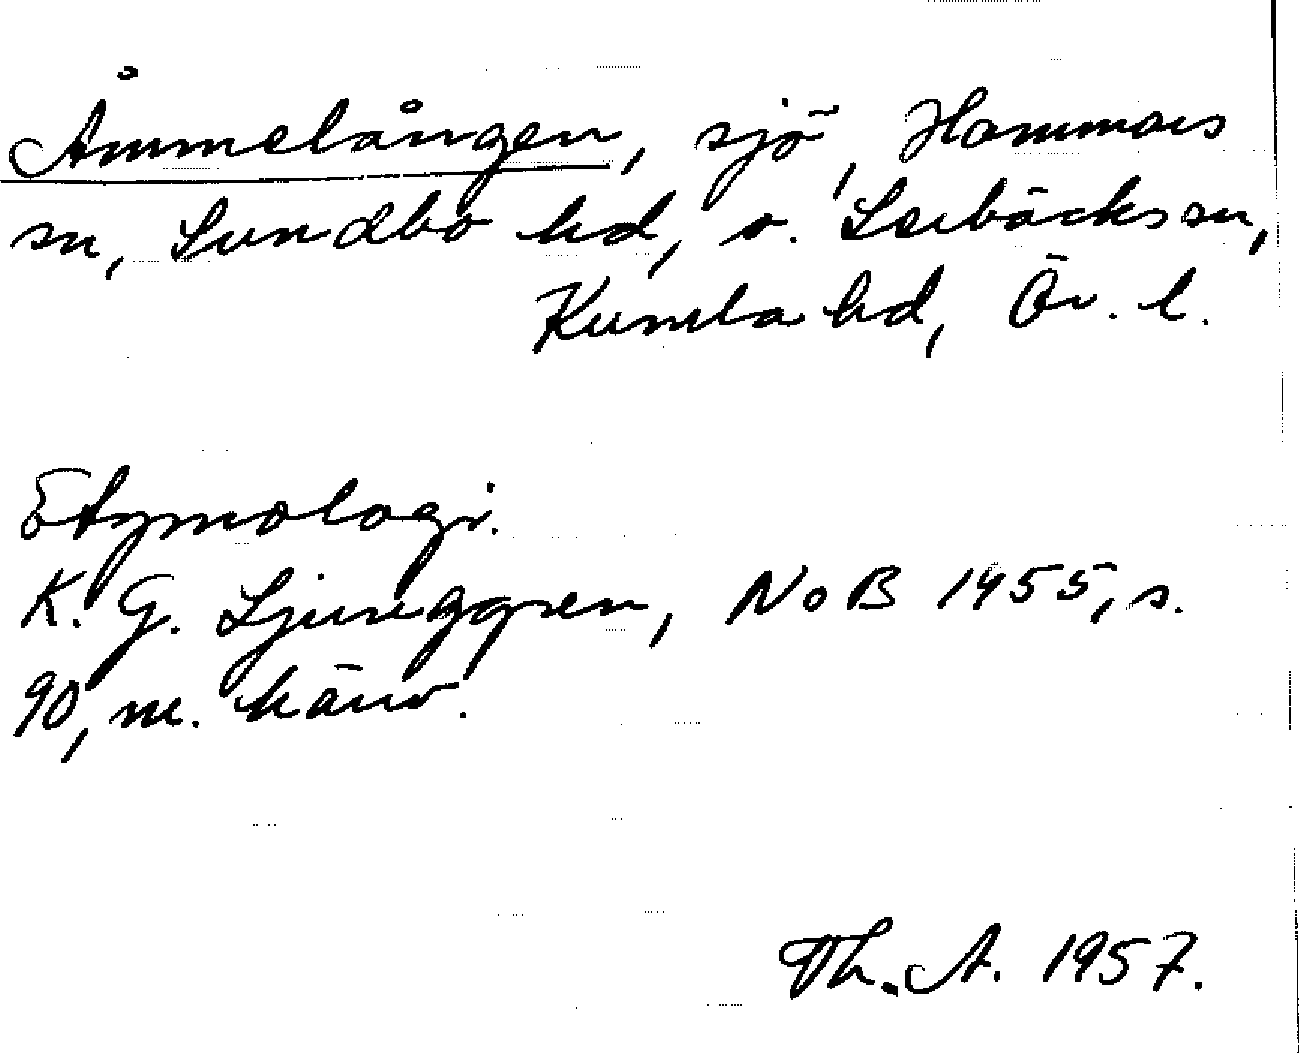 Åmmelången, sjö, Hammars
sn, Sundbo hd, o. Lerbäcks sn,
Kumla hd, Ör. l.
Etymologi.
K. G. Ljunggren, NoB 1955, s.
90, m. hänv.
Th. A. 1957.